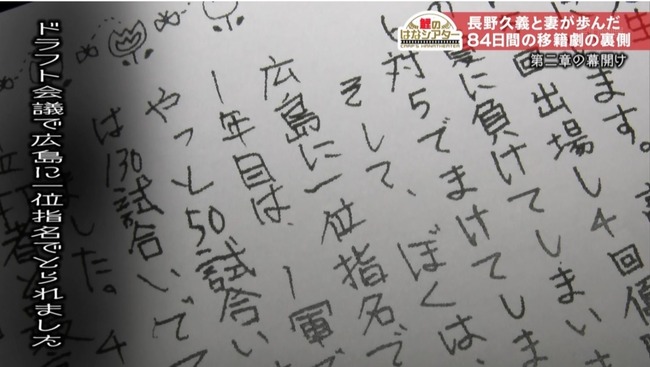 鯉の
はなシアター
CARP'S HANATHEATER
長野久義と妻が歩んだ
84日間の移籍劇の裏側
第二章の幕開け
ます。
回出場し4回優
に負けてしまいま
対5でまけてしま
そして、ぼくは、
広島に一位指名で
1年目は、一軍で
やっと50試合い
は130試合いでて
ました。4
ドラフト会議で広島に一位指名でとられました